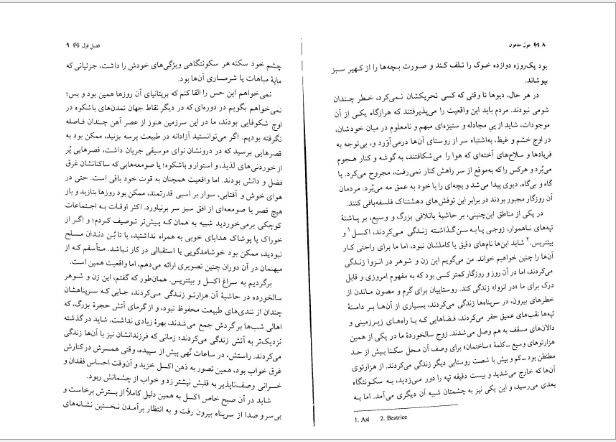 ۸ غول مدفون
بود یک‌روزه دوازده خوک را تلف کند و صورت بچه‌ها را از کهیر سبز
بپوشاند.
در هر حال، دیوها تا وقتی که کسی تحریکشان نمی‌کرد، خطر چندان
شومی نبودند. مردم باید این واقعیت را می‌پذیرفتند که هرازگاه یکی از آن
موجودات، شاید از پی مجادله و ستیزه‌ای مبهم و نامعلوم در میان خودشان،
در اوج خشم و غیظ، به‌اشتباه سر از روستای آن‌ها درمی‌آورد و، بی‌توجه به
فریادها و سلاح‌های آخته‌ای که هوا را می‌شکافتند، به گوشه و کنار هجوم
می‌بُرد و هرکس را که به‌موقع از سر راهش کنار نمی‌رفت، مجروح می‌کرد. یا
گاه و بی‌گاه، دیوی پیدا می‌شد و بچه‌ای را با خود به عمق مه می‌بُرد. مردمان
آن روزگار مجبور بودند در برابر این توفش‌های دهشتناک فلسفه‌بافی کنند.
در یکی از مناطق این‌چنینی، بر حاشیهٔ باتلاقی بزرگ و وسیع، بر پاشنهٔ
تپه‌های ناهموار، زوجی پا به سن گذاشته زندگی می‌کردند، اکسل¹ و
بئاتریس.² شاید این‌ها نام‌های دقیق یا کاملشان نبود، اما ما برای راحتی کار
آن‌ها را چنین خواهیم خواند. من می‌گویم این زن و شوهر در انزوا زندگی
می‌کردند، اما در آن روز و روزگار کمتر کسی بود که به مفهوم امروزی و قابل
درک برای ما «در انزوا» زندگی کند. روستاییان برای گرم و مصون ماندن از
خطرهای بیرون، در سرپناه‌ها زندگی می‌کردند، بسیاری از آن‌ها بر دامنهٔ
تپه‌ها نقب‌های عمیق حفر می‌کردند، فضاهایی که با راه‌های زیرزمینی و
دالان‌های مسقف به هم وصل می‌شدند. زوج سالخوردهٔ ما در یکی از همین
هزارتوهای وسیع ــ کلمهٔ «ساختمان» برای وصف آن محل سکنا بیش از حد
مطنطن بود ــ کم و بیش با شصت روستایی دیگر زندگی می‌کردند. از هزارتوی
آن‌ها که خارج می‌شدید و بیست دقیقه تپه را دور می‌زدید، به سکونتگاه
بعدی می‌رسید، و این یکی نیز به چشمتان شبیه آن دیگری می‌آمد. اما به
1. Axl 2. Beatrice
فصل اول ۹
چشم خود سکنه هر سکونتگاهی ویژگی‌های خودش را داشت، جزئیاتی که
مایهٔ مباهات یا شرمساری آن‌ها بود.
نمی‌خواهم این حس را القا کنم که بریتانیای آن روزها همین بود و بس؛
نمی‌خواهم بگویم در دوره‌ای که در دیگر نقاط جهان تمدن‌های باشکوه در
اوج شکوفایی بودند، ما در این سرزمین هنوز از عصر آهن چندان فاصله
نگرفته بودیم. اگر می‌توانستید آزادانه در طبیعت پرسه بزنید، ممکن بود به
قصرهایی برسید که در درونشان نوای موسیقی جریان باشت، قصرهایی پُر
از خوردنی‌های لذیذ، و استوار و باشکوه؛ یا صومعه‌هایی که ساکنانش غرق
فضل و دانش بودند. اما واقعیت همچنان به قوت خود باقی است. حتی در
هوای خوش و آفتابی، سوار بر اسبی قدرتمند، ممکن بود روزها بتازید و باز
هیچ قصر یا صومعه‌ای از افق سبز سر برنیاورد. اکثر اوقات به اجتماعات
کوچکی برمی‌خوردید شبیه به همان که پیش‌تر توصیف کردم؛ و اگر از
خوراک یا پوشاک هدایای خوبی به همراه نداشتید، یا تا بُن دندان مسلح
نبودید، ممکن بود خوشامدگویی یا استقبالی در کار نباشد. متأسفم که از
میهنمان در آن دوران چنین تصویری ارائه می‌دهم، اما واقعیت همین است.
برگردیم به سراغ اکسل و بئاتریس. همان‌طور که گفتم، این زن و شوهر
سالخورده در حاشیهٔ آن هزارتو زندگی می‌کردند، جایی که سرپناهشان
چندان از تندی‌های طبیعت محفوظ نبود، و از گرمای آتش حجرهٔ بزرگ، که
اهالی شب‌ها برگردش جمع می‌شدند، بهرهٔ زیادی نداشت. شاید در گذشته
نزدیک‌تر به آتش زندگی می‌کردند؛ زمانی که فرزندانشان نیز با آن‌ها زندگی
می‌کردند. راستش، در ساعات تُهی پیش از سپیده، وقتی همسرش در کنارش
غرق خواب بود، همین تصور به ذهن اکسل خزید و آن‌وقت احساس فقدان و
خسرانی وصف‌ناپذیر به قلبش نیشتر زد و خواب از چشمانش ربود.
شاید در آن صبح خاص اکسل به همین دلیل کاملاً از بسترش برخاست و
بی‌سر و صدا از سرپناه بیرون رفت و به انتظار برآمدن نخستین نشانه‌های